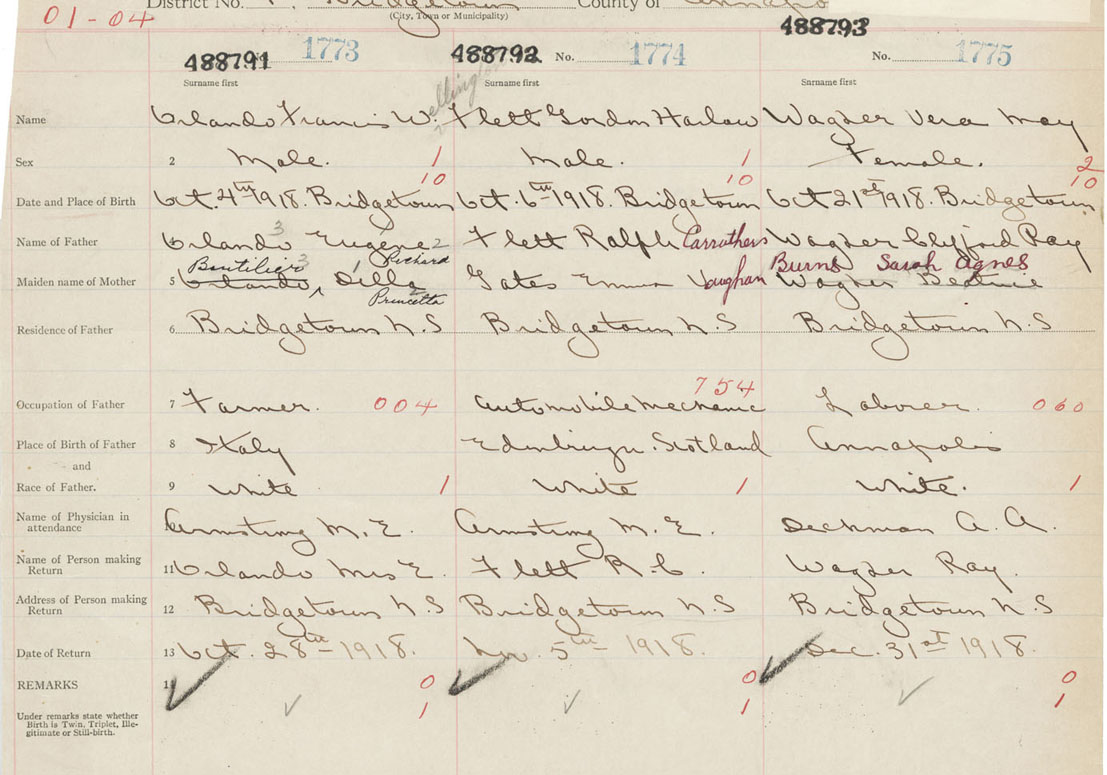 01-04
District No. Bridgetown County of Annapo
(City, Town or Municipality)
488791 1773 488792 No. 1774 488793 No. 1775
Surname first Surname first Surname first
Name Orlando Francis W. ellington Flett Gordon Harlow Wagner Vera May
Sex 2 Male. 1 Male. 1 Female. 2
10 10 10
Date and Place of Birth Oct. 4th 1918. Bridgetown Oct. 6th 1918. Bridgetown Oct 21st 1918. Bridgetown
3
Name of Father Orlando Eugene 2 Flett Ralph Carruthers Wagner Clyford Ray
Boutilier 3 Richard Burns Sarah Agnes
Maiden name of Mother 5 Orlando, Della Gates Emma Vaughan Wagner Beatrice
Princetta
Residence of Father 6 Bridgetown N.S Bridgetown N.S Bridgetown N.S
754
Occupation of Father 7 Farmer. 004 Automobile Mechanic Laborer. 060
Place of Birth of Father 8 Italy Edinburgh. Scotland Annapolis
and
Race of Father. 9 White 1 White 1 White. 1
Name of Physician in
attendance Armstrong M. E. Armstrong M. E. Deckman A. A.
Name of Person making
Return 11 Orlando Mrs E. Flett R. C. Wagner Ray.
Address of Person making
Return 12 Bridgetown N.S Bridgetown N.S Bridgetown N.S
Date of Return 13 Oct. 28th 1918. Nov. 5th 1918. Dec. 31st 1918.
REMARKS 14 0 0 0
1 1 1
Under remarks state whether
Birth is Twin, Triplet, Ille-
gitimate or Still-birth.